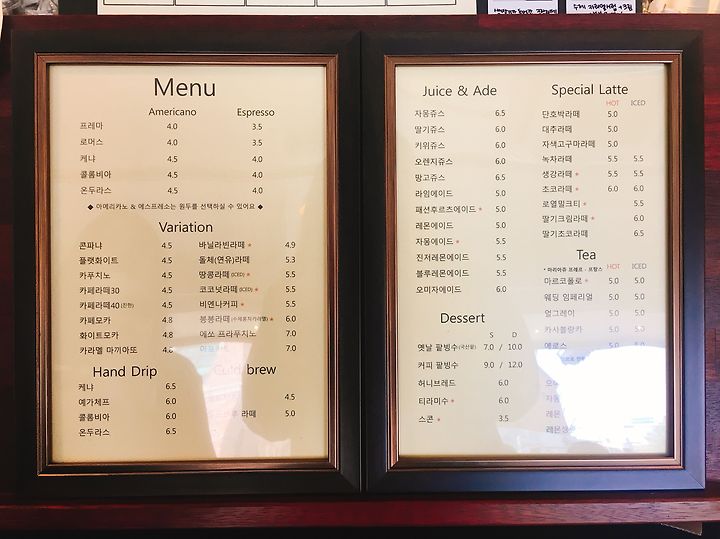 Menu
Americano Espresso
프레마 4.0 3.5
로머스 4.0 3.5
케냐 4.5 4.0
콜롬비아 4.5 4.0
온두라스 4.5 4.0
◆ 아메리카노 & 에스프레소는 원두를 선택하실 수 있어요 ◆
Variation
콘파냐 4.5
플랫화이트 4.5
카푸치노 4.5
카페라떼30 4.5
카페라떼40(진한) 4.5
카페모카 4.8
화이트모카 4.8
카라멜 마끼아또 4.8
바닐라빈라떼 * 4.9
돌체(연유)라떼 5.3
땅콩라떼 (ICED) * 5.5
코코넛라떼 (ICED) * 5.5
비엔나커피 * 5.5
봉봉라떼 * 6.0
에쏘 프라푸치노 7.0
7.0
Hand Drip
케냐 6.5
예가체프 6.0
콜롬비아 6.0
온두라스 6.5
Cold brew
4.5
라떼 5.0
Juice & Ade
자몽쥬스 6.5
딸기쥬스 6.0
키위쥬스 6.0
오렌지쥬스 6.0
망고쥬스 6.5
라임에이드 5.0
패션후르츠에이드 * 5.0
레몬에이드 5.0
자몽에이드 * 5.5
진저레몬에이드 5.5
블루레몬에이드 5.5
오미자에이드 6.0
Dessert
S D
옛날 팥빙수(국산팥) 7.0 / 10.0
커피 팥빙수 9.0 / 12.0
허니브레드 6.0
티라미수 * 6.0
스콘 * 3.5
Special Latte
HOT ICED
단호박라떼 5.0
대추라떼 5.0
자색고구마라떼 5.0
녹차라떼 5.5 5.5
생강라떼 * 5.5 5.5
초코라떼 * 6.0 6.0
로열밀크티 * 5.5
딸기크림라떼 * 6.0
딸기초코라떼 6.5
Tea
* 마리아쥬 프레르 - 프랑스 HOT ICED
마르코폴로 * 5.0 5.0
웨딩 임페리얼 5.0 5.0
얼그레이 5.0 5.0
카사블랑카 5.0 5.0
에로스 5.0 5.0